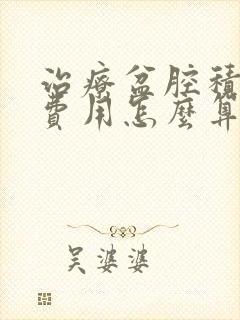 治療盆腔積
費用怎麼算
吳婆婆